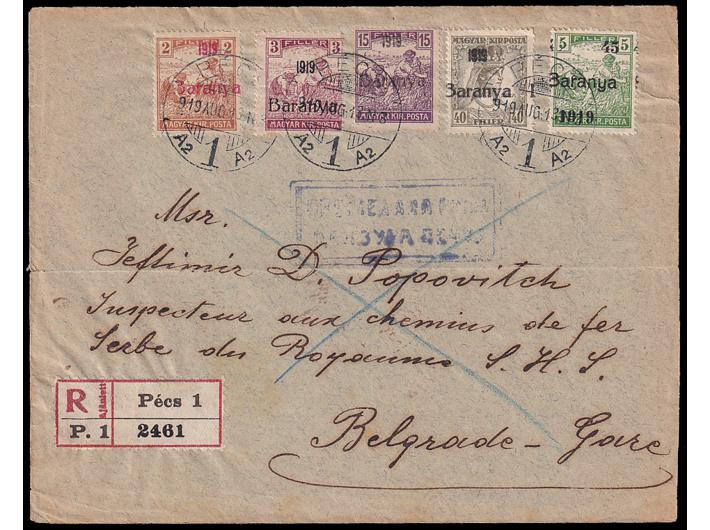 2 FILLER 2
1919
Baranya
MAGYAR KIR. POSTA
3 FILLER 3
1919
Baranya
MAGYAR KIR. POSTA
15 FILLER 15
1919
Baranya
MAGYAR KIR. POSTA
MAGYAR KIR. POSTA
1919
Baranya
40 FILLÉR 40
5 FILLER 45 5
Baranya
1919
MAGYAR KIR. POSTA
919 AUG.
A2 1 A2
A2 1 A2
A2 1 A2
Msr.
Jeftimir D. Popovitch
Inspecteur aux chemins de fer
Serbe du Royaume S. H. S.
Belgrade - Gare
R Ajánlott Pécs 1
P. 1 2461